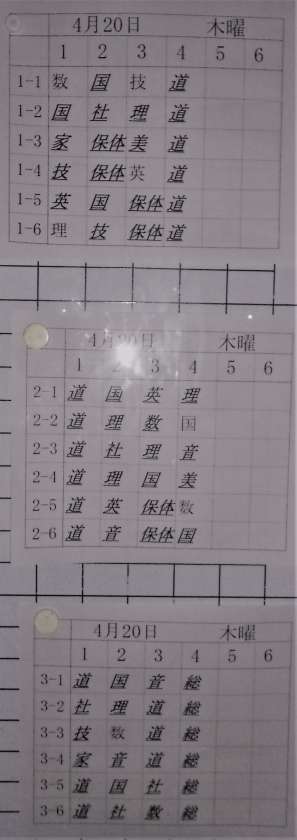 4月20日 木曜
1 2 3 4 5 6
1-1 数 国 技 道
1-2 国 社 理 道
1-3 家 保体 美 道
1-4 技 保体 英 道
1-5 英 国 保体 道
1-6 理 技 保体 道
4月20日 木曜
1 2 3 4 5 6
2-1 道 国 英 理
2-2 道 理 数 国
2-3 道 社 理 音
2-4 道 理 国 美
2-5 道 英 保体 数
2-6 道 音 保体 国
4月20日 木曜
1 2 3 4 5 6
3-1 道 国 音 総
3-2 社 理 道 総
3-3 技 数 道 総
3-4 家 音 道 総
3-5 道 国 社 総
3-6 道 社 数 総